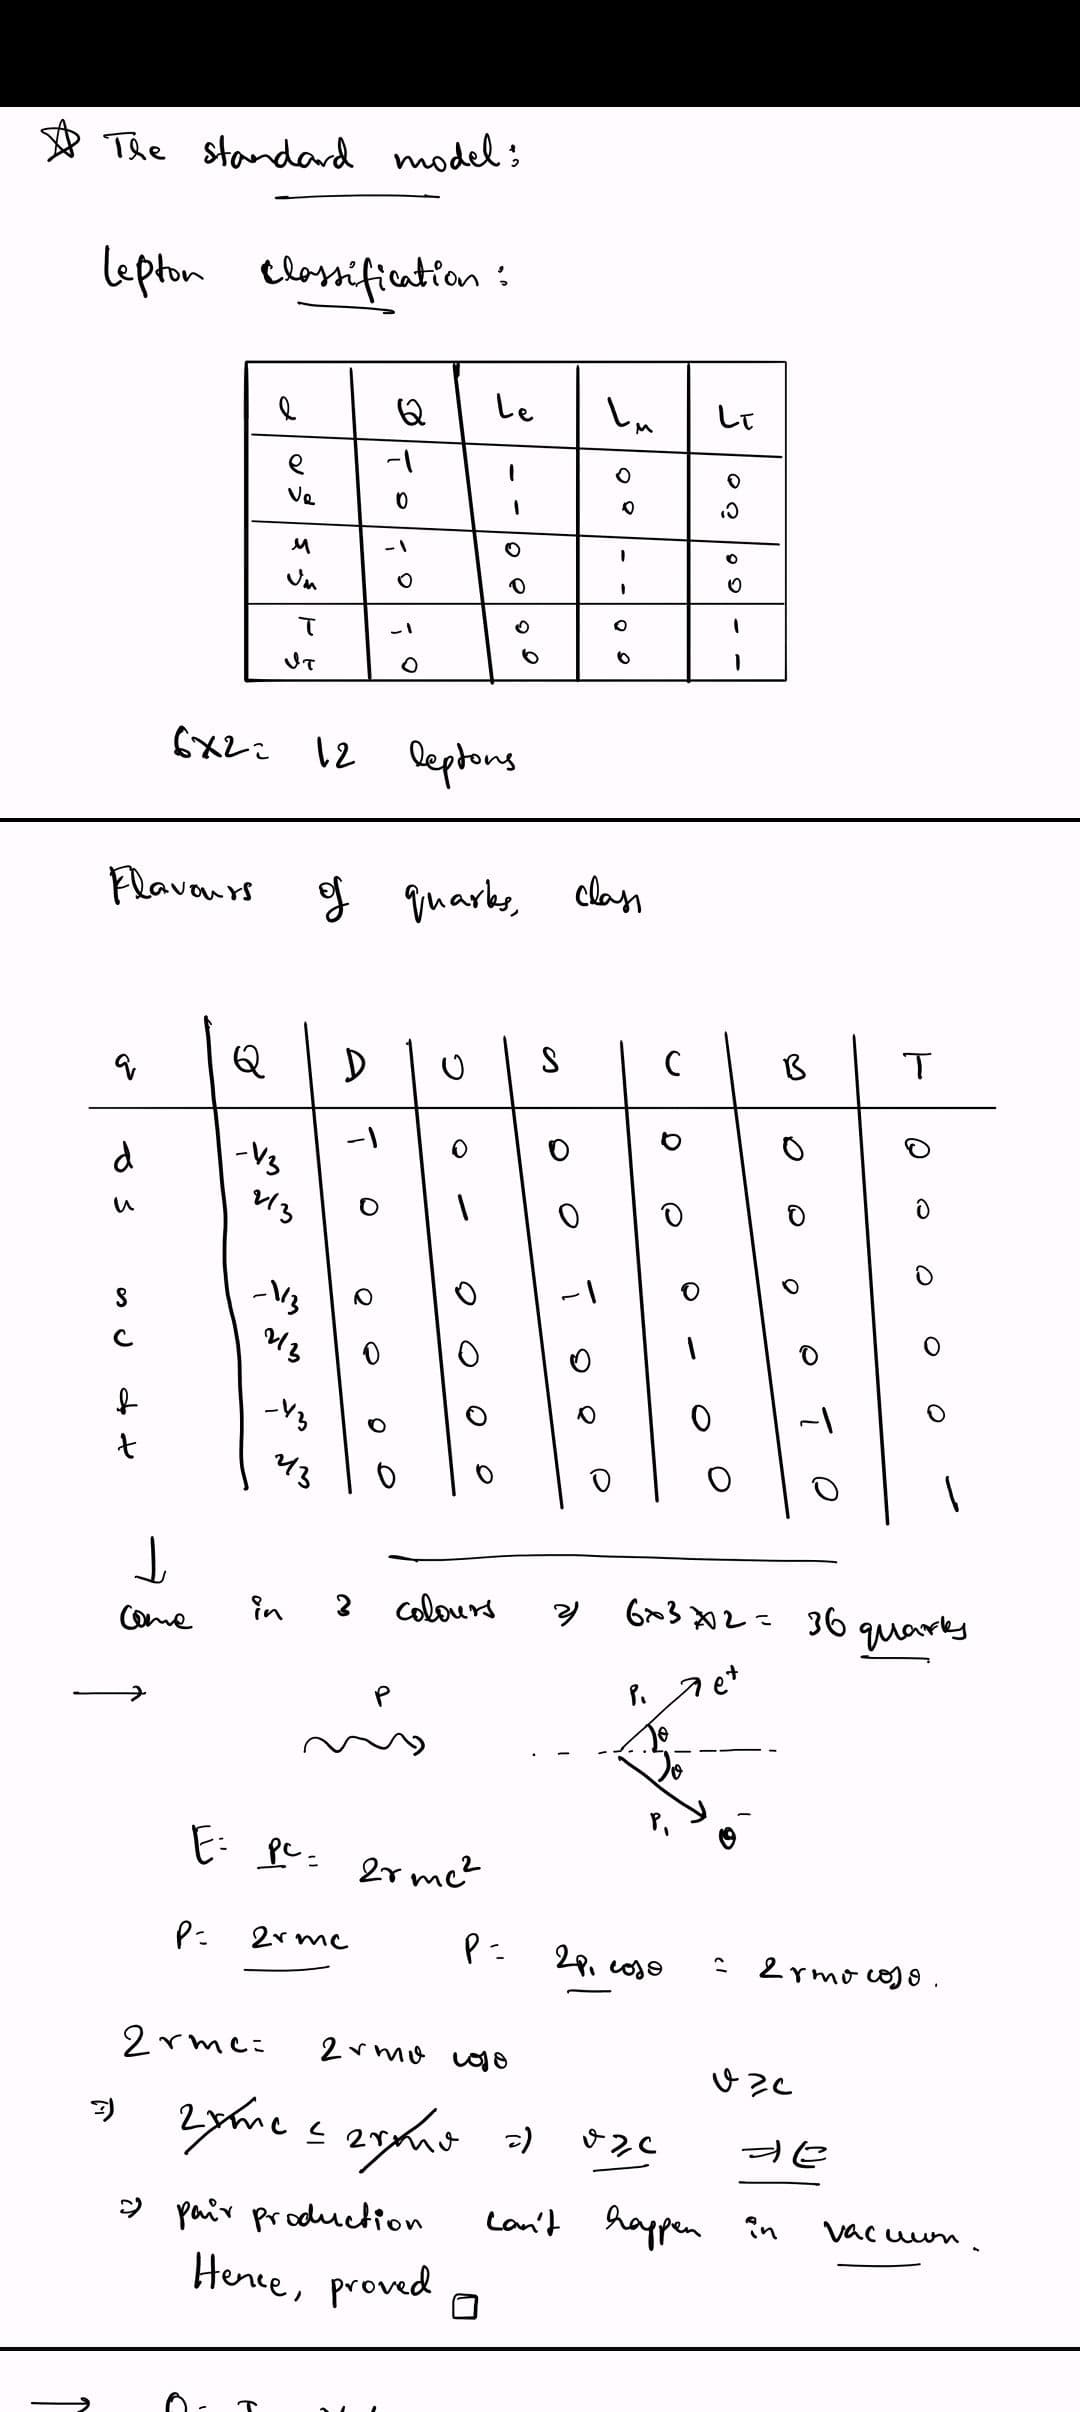 ☆ The standard model:
Lepton classification:
l Q Le Lμ Lτ
e -1 1 0 0
νe 0 1 0 0
μ -1 0 1 0
νμ 0 0 1 0
τ -1 0 0 1
ντ 0 0 0 1
6x2= 12 leptons
Flavours of quarks, class
q Q D U S C B T
d -1/3 -1 0 0 0 0 0
u 2/3 0 1 0 0 0 0
s -1/3 0 0 -1 0 0 0
c 2/3 0 0 0 1 0 0
b -1/3 0 0 0 0 -1 0
t 2/3 0 0 0 0 0 1
↓
come in 3 colours ⇒ 6x3x2 = 36 quarks
→ P P₁ e⁺
θ
θ
P₁ e⁻
E= pc = 2γmc²
P= 2γmc P= 2P₁ cosθ = 2γmv cosθ.
2γmc= 2γmv cosθ
v≥c
⇒ 2γmc ≤ 2γmv ⇒ v≥c ⇒⇐
⇒ pair production can't happen in vacuum.
Hence, proved □